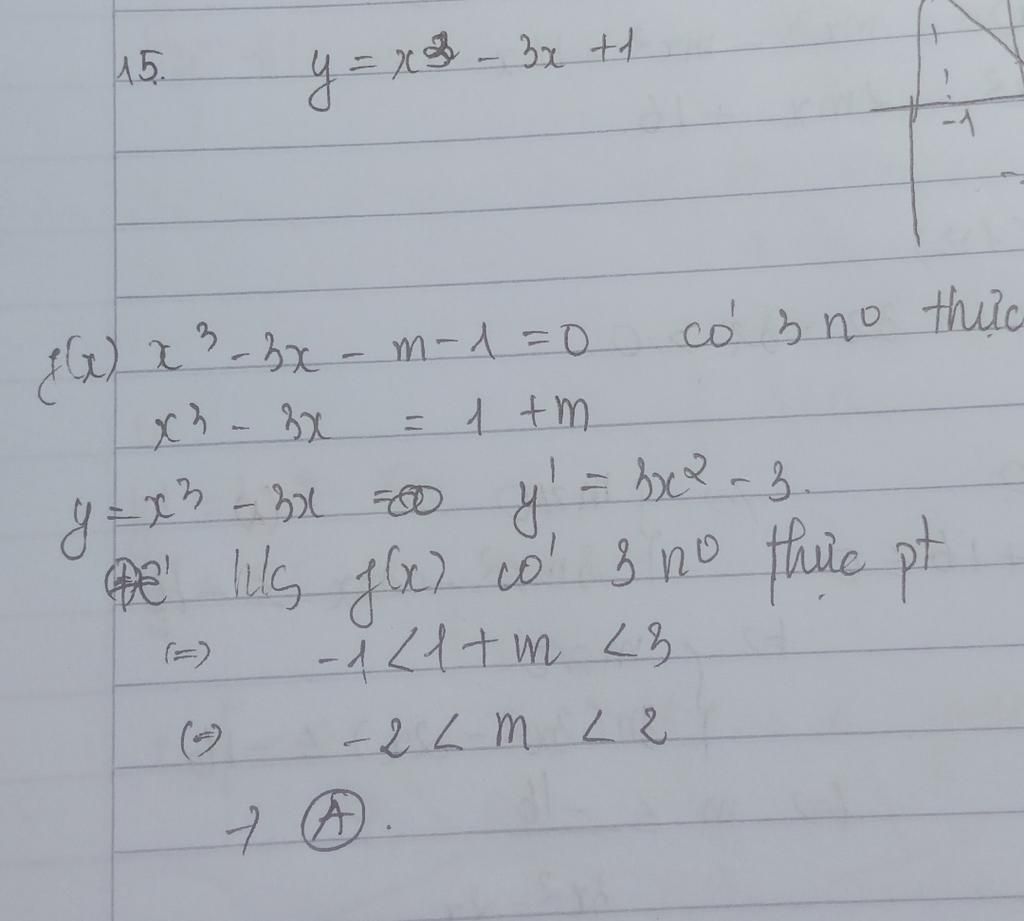 15. y = x3 - 3x + 1
-1
f(x) x³ - 3x - m - 1 = 0 có 3 no thực
x³ - 3x = 1 + m
y = x³ - 3x y' = 3x² - 3.
f(x) có 3 no thực pt
(=) -1 < 1 + m < 3
(=) -2 < m < 2
→ Ⓐ.